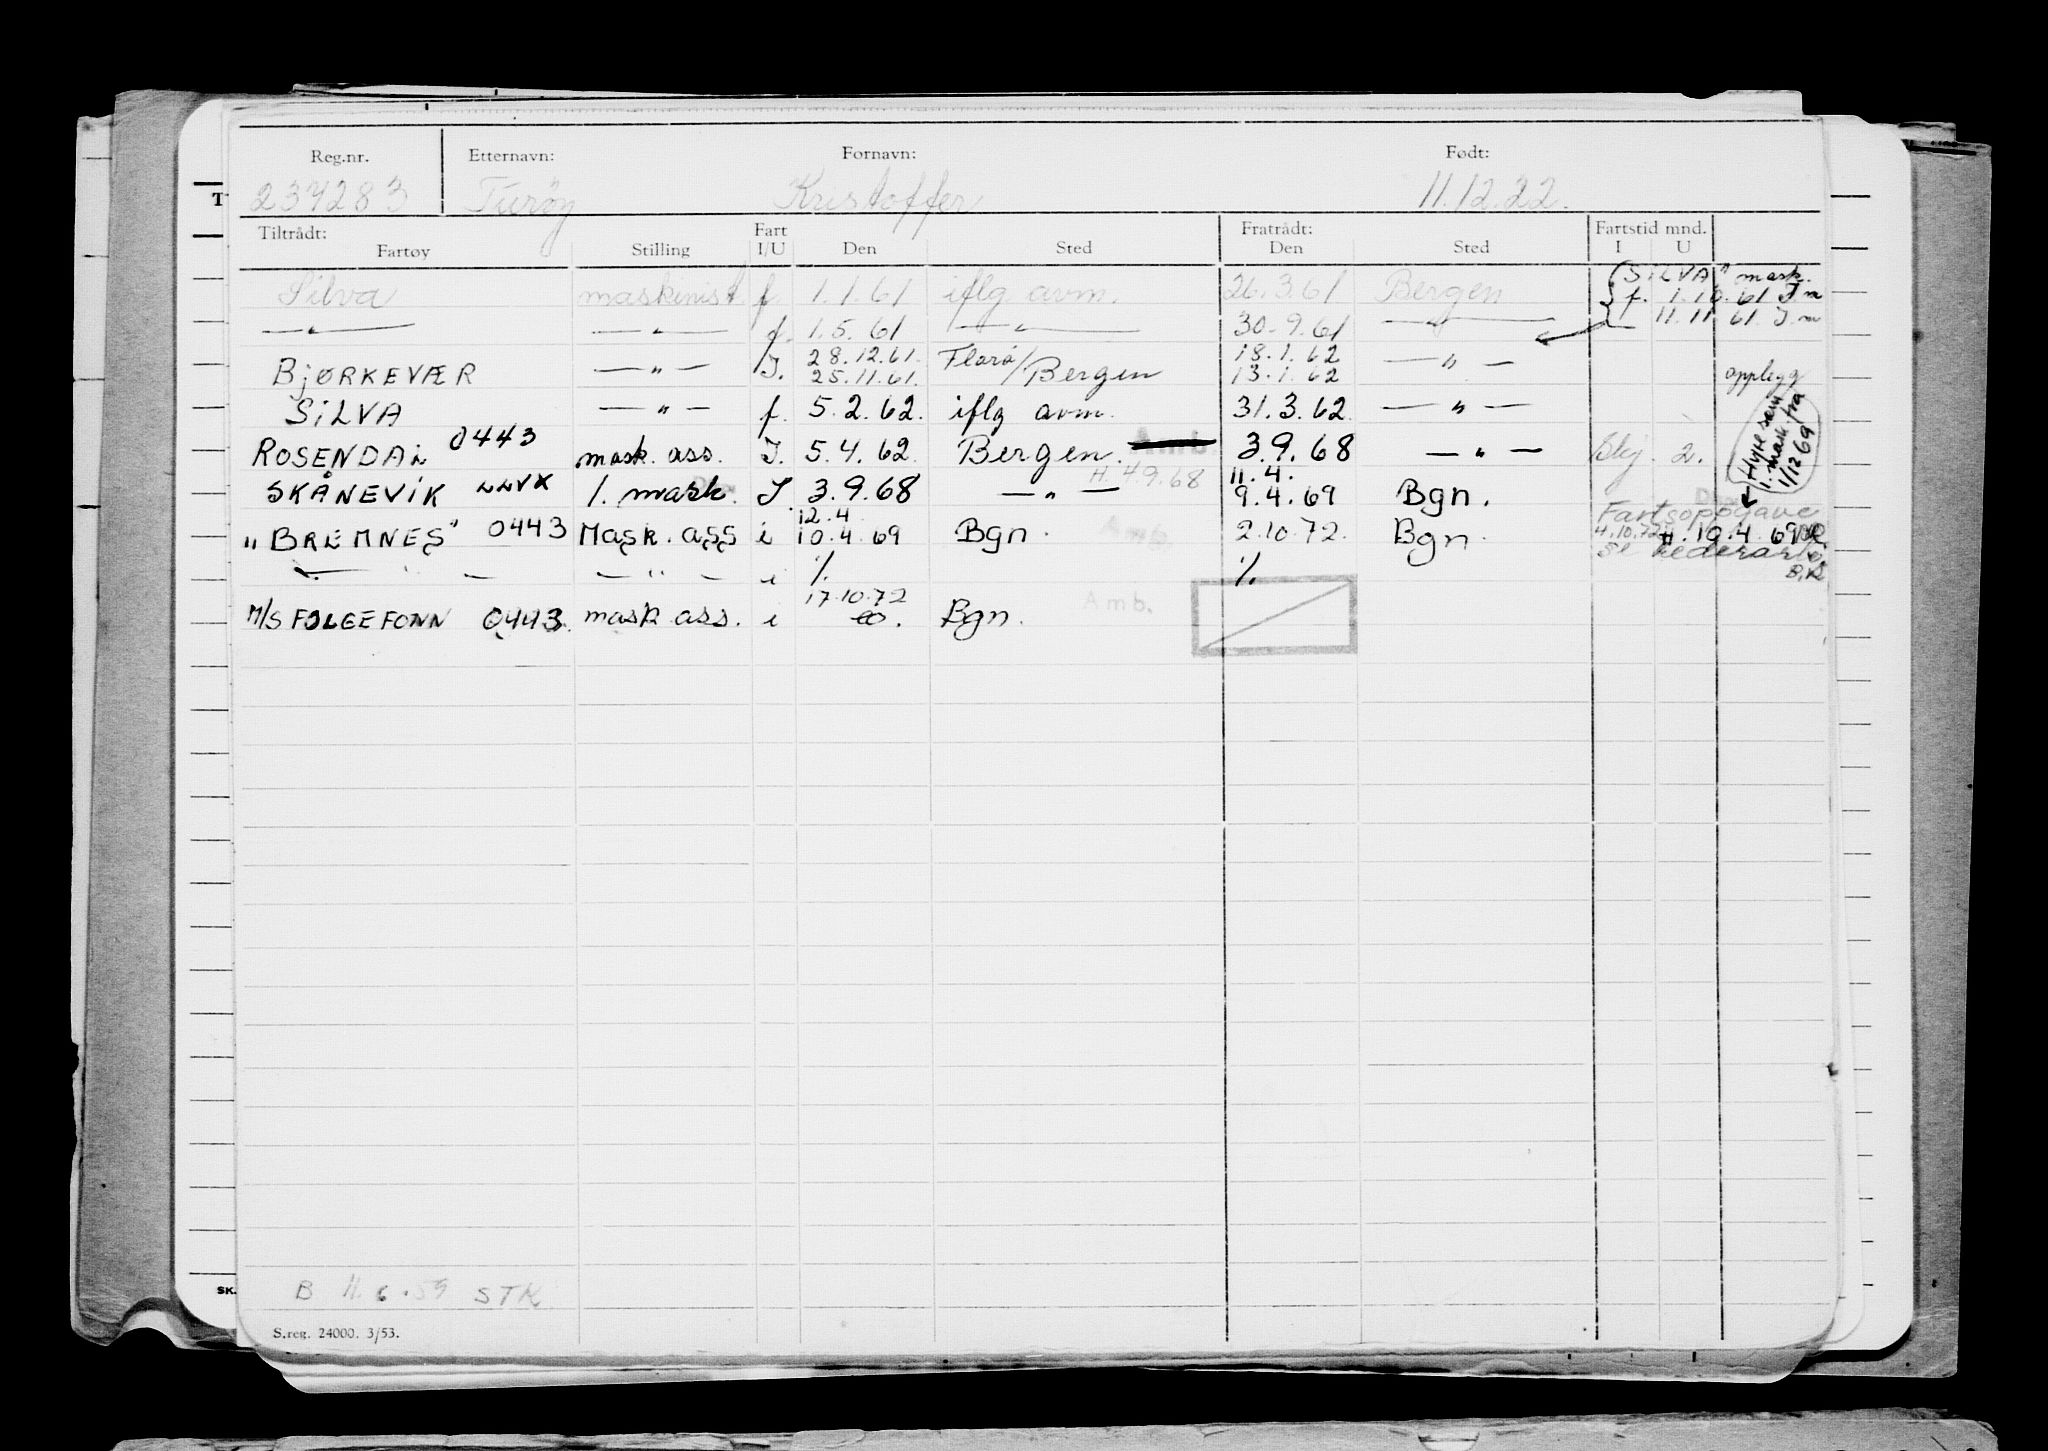 Reg.nr. Etternavn: Fornavn: Født:
237283 Turøy Kristoffer 11.12.22.
Tiltrådt: Fart Fratrådt: Fartstid mnd.
Fartøy Stilling I/U Den Sted Den Sted I U
Silva maskinist f. 1.1.61 iflg avm. 26.3.61 Bergen
(SiLVA" mask.
f. 1.10.61 I m
11.11 61 I m
—"— —"— f. 1.5.61 —"— 30.9.61 —"—
28.12.61. Florø/ 18.1.62
BjØRKEVÆR —"— I. 25.11.61. Bergen 13.1.62 —"— opplegg
SiLVA —"— f. 5.2.62. iflg avm. 31.3.62. —"—
ROSENDAL 0443 mask. ass. I. 5.4.62. Bergen. Amb. 3.9.68 —"— 2.
Hyre som
1. mask. fra
1/12 69
H. 4.9.68 11.4.
SKÅNEVIK LLVX 1. mask. I 3.9.68 —"— 9.4.69 Bgn.
12.4 Fartsoppgave
"BREMNES" 0443 Mask. ass i 10.4.69 Bgn. Amb. 2.10.72. Bgn. 4.10.72 H. 10.4.69
se
—"— —"— i %. %.
17.10.72
M/S FOLGEFONN 0443. mask ass. i Bgn. Amb.
B 11.6.59 STK
S.reg. 24000. 3/53.
SK.